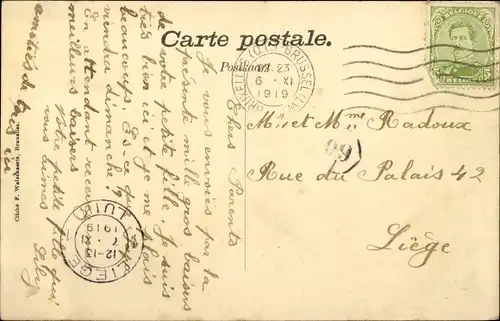 Carte postale.
Postkaart
22-23
6 · XI
1919
Chers Parents
Je vous envoies par la
présente mille gros baisers
de votre petite fille. Je suis
très bien ici et je me plais
beaucoup. Es-ce que
viendra dimanche?
En attendant recevez
meilleurs baisers
Votre petite fille qui
vous aimes
amitiés de
ici
Mr et Mme Radoux
Rue du Palais 42
Liège
99
LIEGE
12-13
7 · XI
1919
LUIK
Cliché F. Walschaerts, Bruxelles